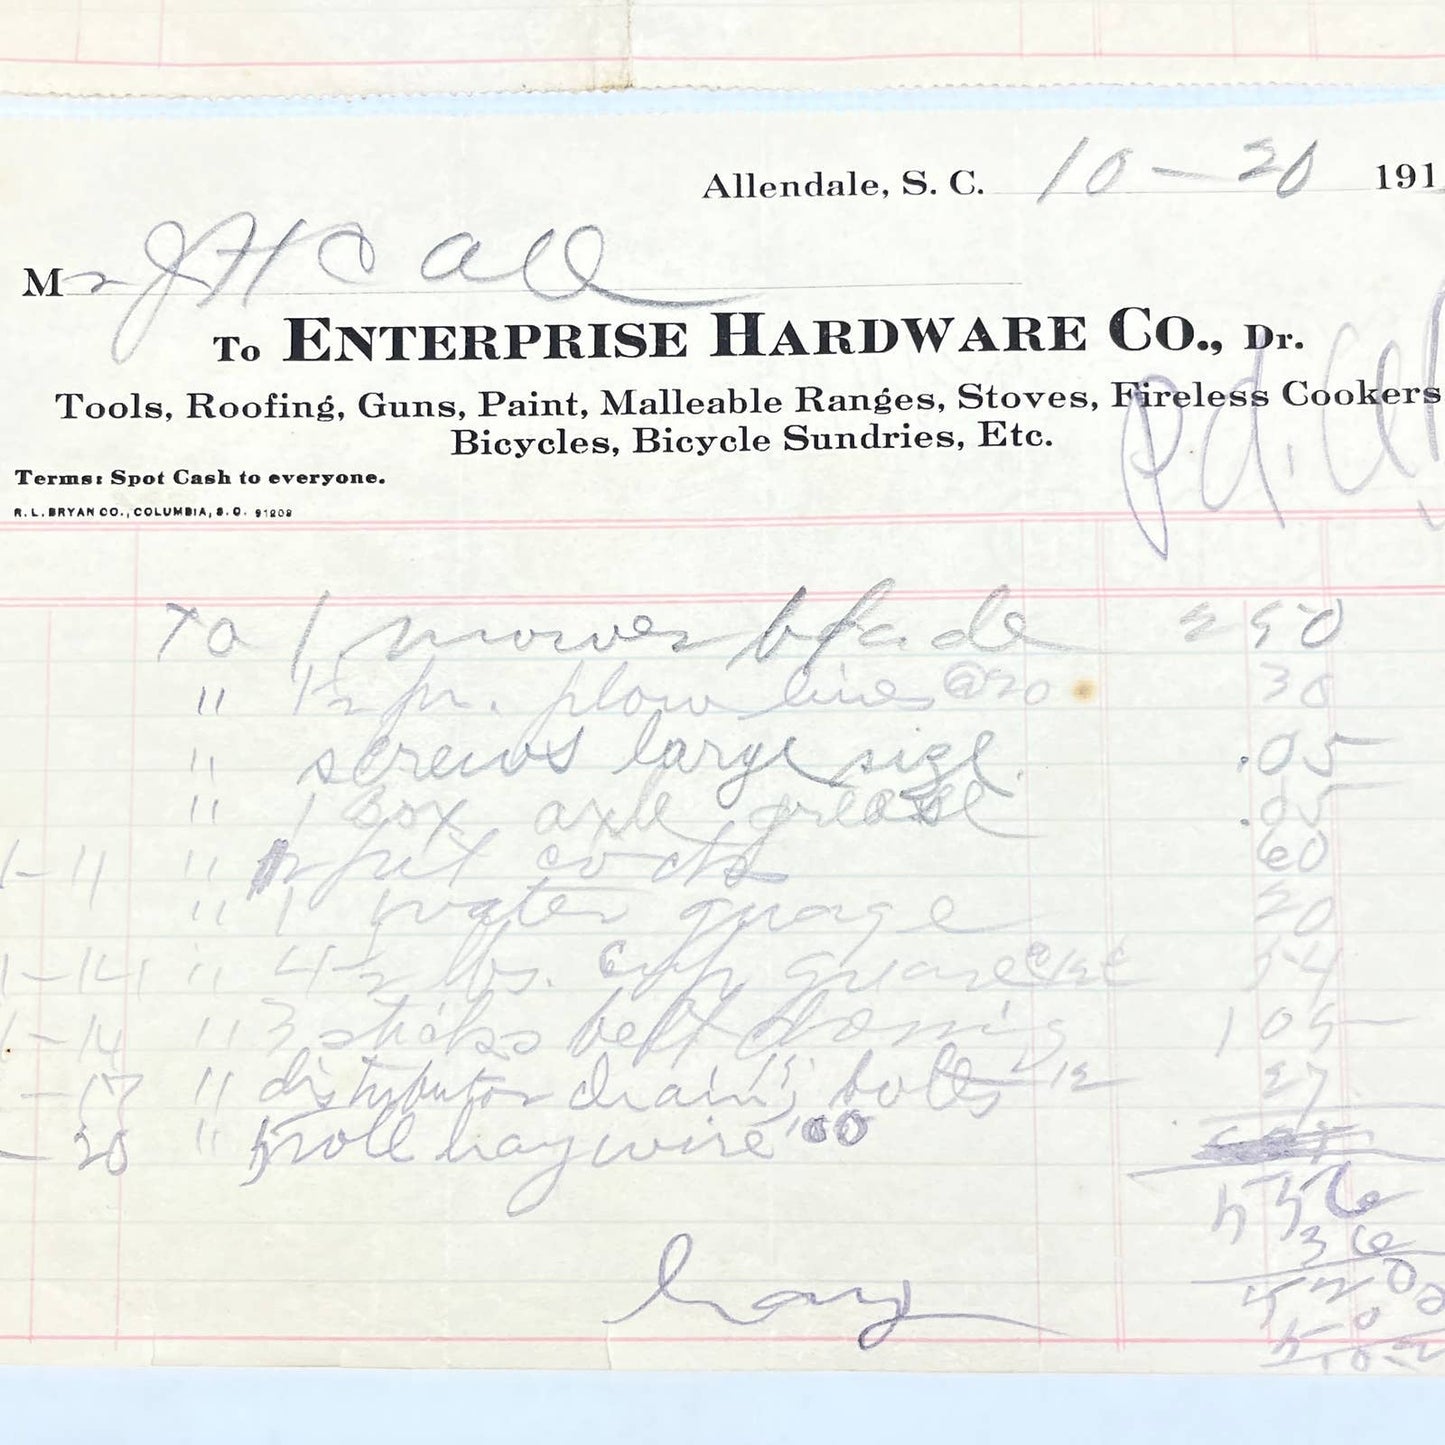 Allendale, S. C. 10-20 191
Mr J H Call
To ENTERPRISE HARDWARE CO., Dr.
Tools, Roofing, Guns, Paint, Malleable Ranges, Stoves, Fireless Cookers
Bicycles, Bicycle Sundries, Etc.
Pd.
Terms: Spot Cash to everyone.
R. L. BRYAN CO., COLUMBIA, S. C. 91208
To 1 mower blade 2 50
" 1½ pr. plow lines @20 30
" screws large size. .05
" 1 Box axle grease .05
1-11 " pet cocks 60
" 1 water guage 20
1-14 " 4½ lbs. cup grease @12¢ 54
1-14 " 3 sticks belt 1 05
-17 " distributor chain 15, bolts 12 27
20 " roll haywire
5 56
36
5 20
hay